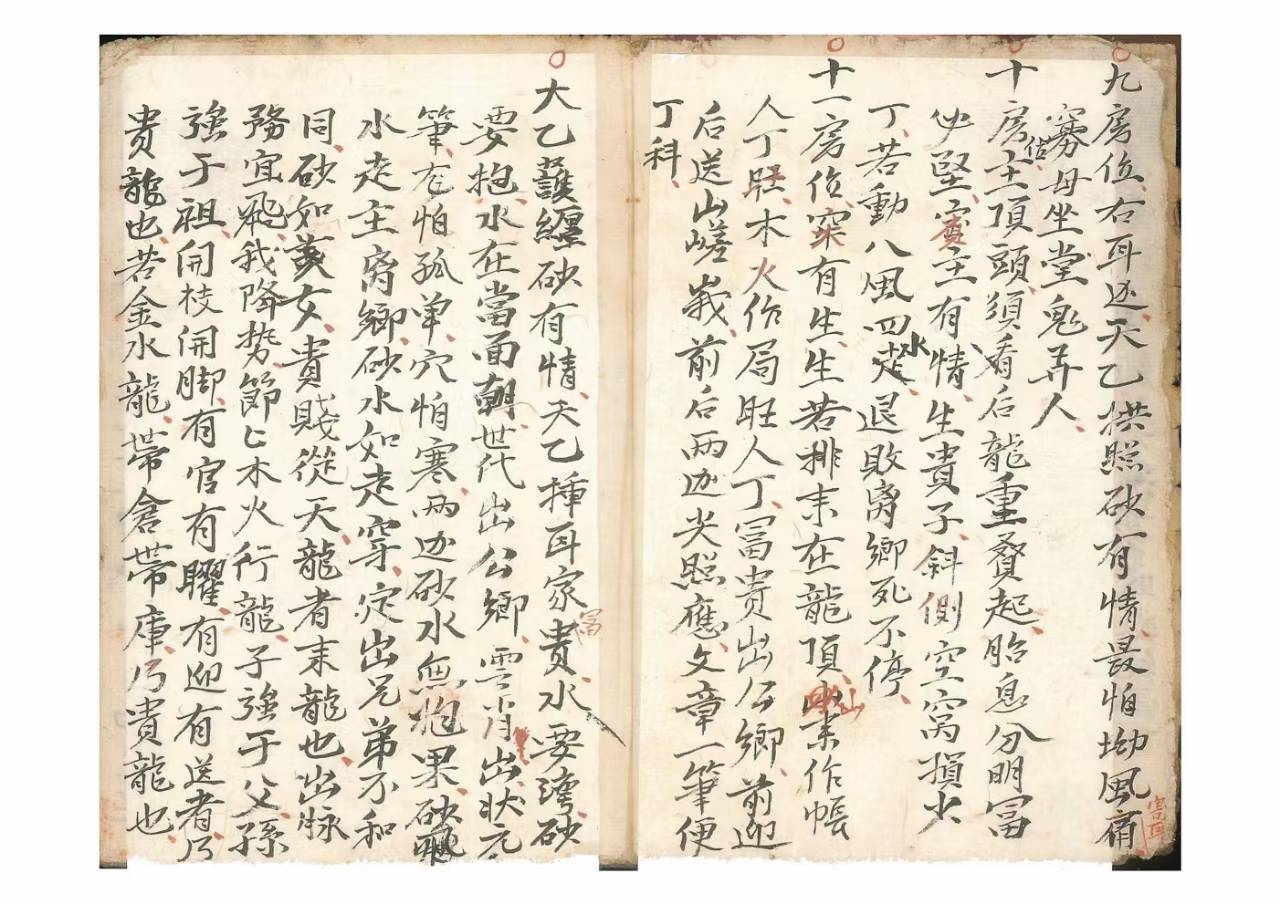 九房位右耳边天乙拱照砂有情最怕坳風痛
寡母坐堂鬼弄人
十房主頂頭須看后龍重叠起胎息分明富
堅實主有情生貴子斜側空窩損少
丁若動八風四水走退敗离鄉死不停
十一房位案有生生若排末在龍頂山案作帳
人丁旺木火作局旺人丁富贵出公鄉前迎
后送山嵯峩前后两边尖照應文章一筆便
丁科
大乙護纏砂有情天乙揷耳家富貴水要湾砂
要抱水在當面朝世代出公鄉雲肖出状元
筆龙怕孤单穴怕寒两边砂水無抱果砂飛
水走主离鄉砂水如走穿定出兄弟不和
同砂如美女貴賤從天龍者末龍也出脉
務宜飛我降势節匕木火行龍子強于父孫
強于祖開枝開脚有官有曜有迎有送者乃
貴龍也若金水龍带倉带庫乃貴龍也